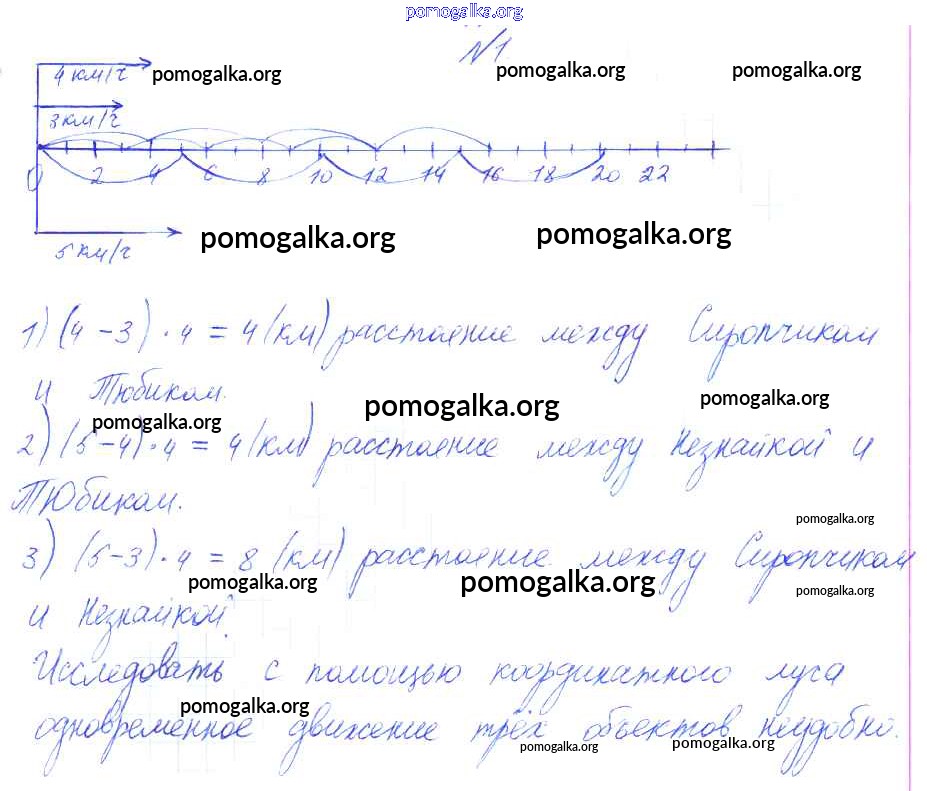 pomogalka.org
№1.
4 км/ч pomogalka.org pomogalka.org pomogalka.org
3 км/ч
0 2 4 6 8 10 12 14 16 18 20 22
5 км/ч pomogalka.org pomogalka.org
1) (4 - 3) · 4 = 4 (км) расстояние между Сиропчиком
и Тюбиком.
pomogalka.org pomogalka.org pomogalka.org
2) (5 - 4) · 4 = 4 (км) расстояние между Незнайкой и
Тюбиком.
pomogalka.org
3) (5 - 3) · 4 = 8 (км) расстояние между Сиропчиком
pomogalka.org pomogalka.org pomogalka.org
и Незнайкой.
Исследовать с помощью координатного луча
pomogalka.org
одновременное движение трёх объектов неудобно.
pomogalka.org pomogalka.org